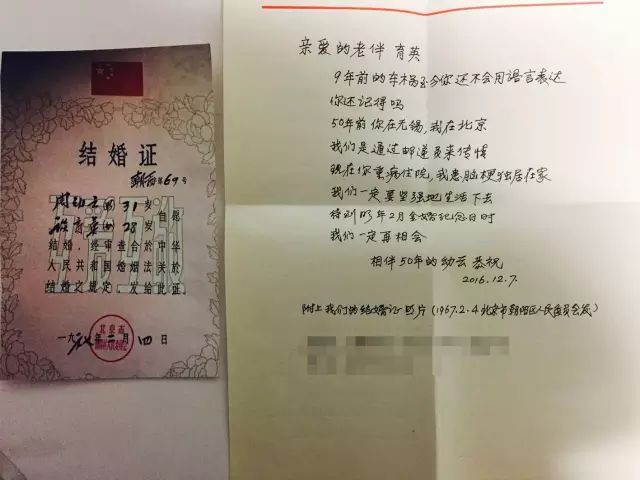 结婚证
字第69号
男 31岁
女 28岁
自愿
结婚,经审查合於中华
人民共和国婚姻法关於
结婚之规定,发给此证。
一九六七年二月四日
亲爱的老伴 育英
9年前的车祸至今你还不会用语言表达
你还记得吗
50年前你在无锡,我在北京
我们是通过邮递员来传情
现在你重病住院,我患脑梗独居在家
我们一定要坚强地生活下去
待到17年2月金婚纪念日时
我们一定再相会
相伴50年的幼云恭祝
2016.12.7.
附上我们的结婚证照片(1967.2.4北京市朝阳区人民委员会发)